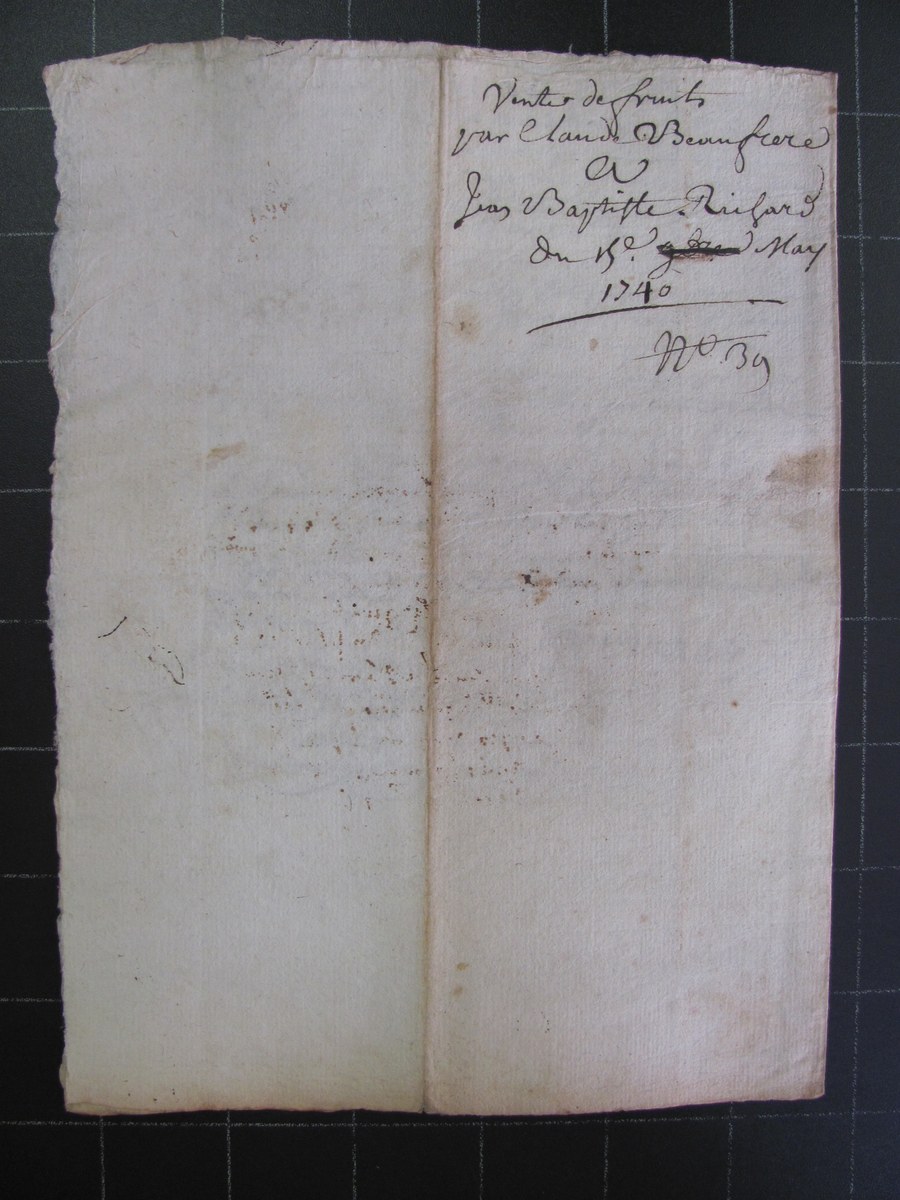 Vente de fruits
par Claude Beaufrere
A
Jean Baptiste Richard
Du 15e. May
1740
No 39